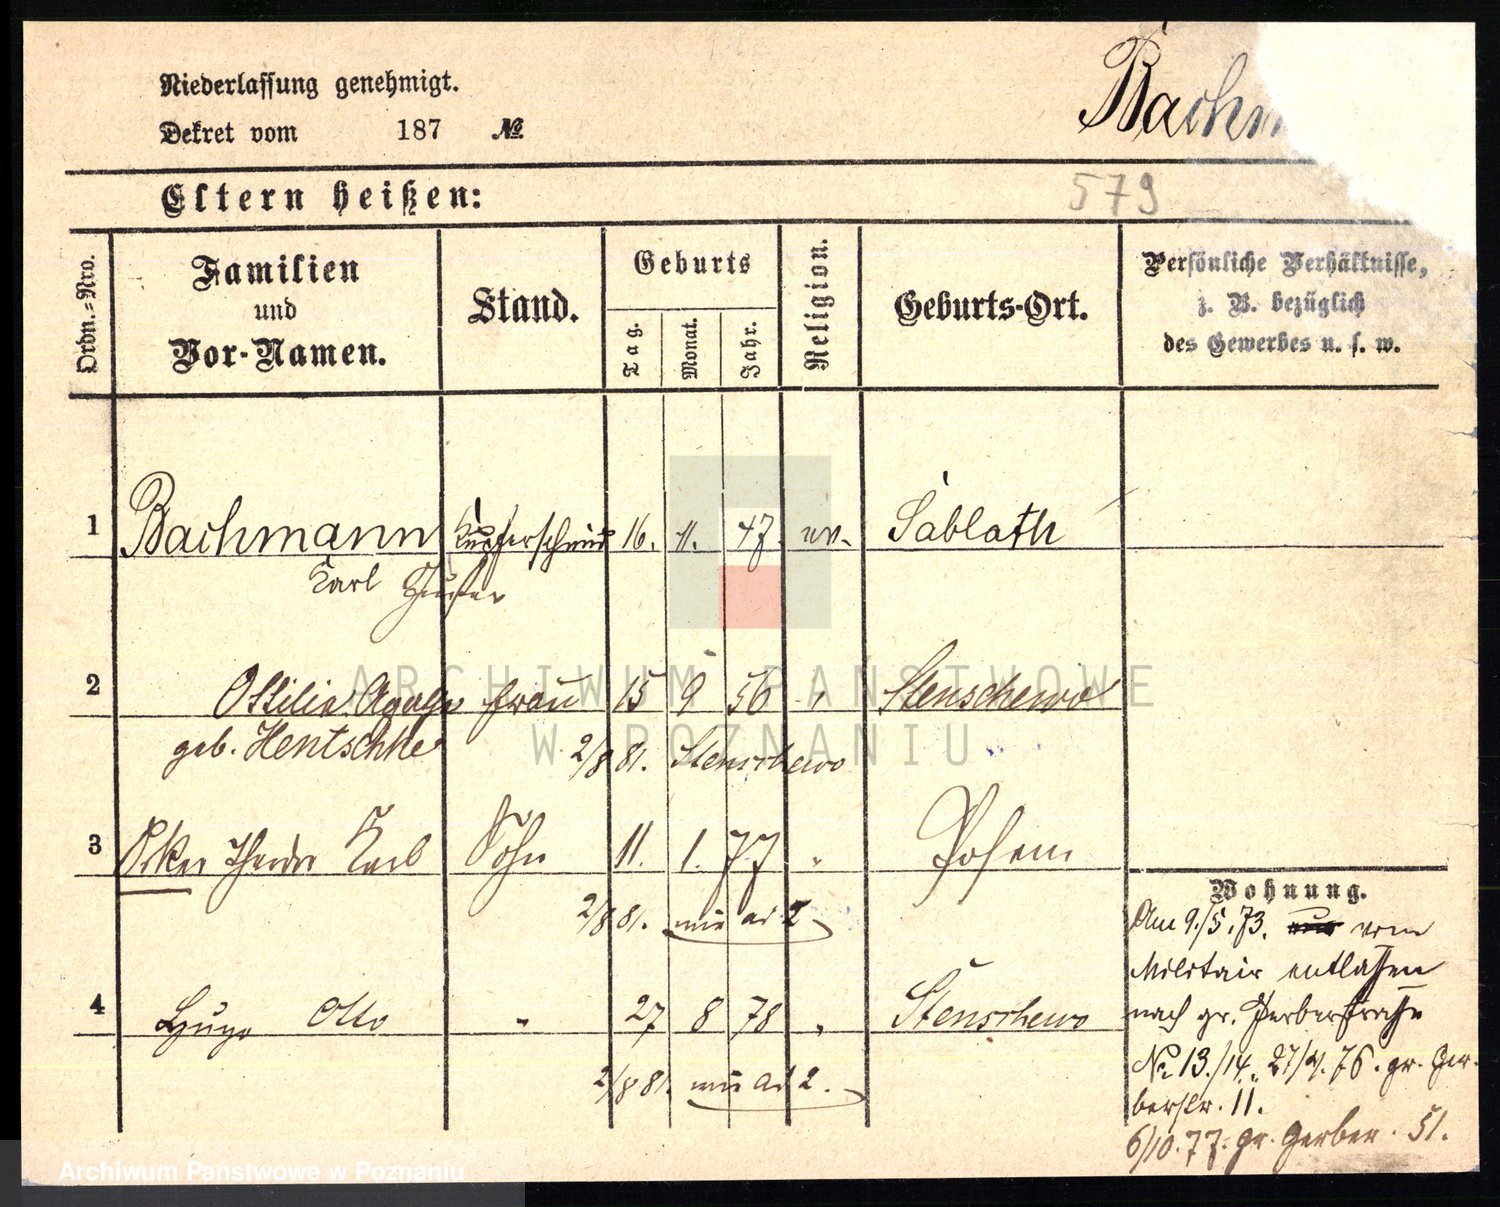 Niederlassung genehmigt.
Dekret vom 187 №
Bachm
Eltern heißen:
579
Ordn.=Nro.
Familien
und
Vor-Namen.
Stand.
Geburts
Tag.
Monat.
Jahr.
Religion.
Geburts-Ort.
Persönliche Verhältnisse,
z. B. bezüglich
des Gewerbes u. s. w.
1 Bachmann Kupferschmied 16. 11. 47. ev. Sablath
Karl Gustav
2 Ottilie Frau 15 9 56 " Stenschewo
geb. Hentschke 2/8 81. Stenschewo
3 Oskar Theodor Karl Sohn 11. 1. 77 " Posen
2/8 81. wie ad 2
4 Hugo Otto " 27 8 78 " Stenschewo
2/8 81. wie ad 2.
Wohnung.
Am 9./5. 73. vom
Militair entlassen
nach gr. Gerberstraße
No 13./14. 27/4. 76. gr. Ger-
berstr. 11.
6/10. 77. gr. Gerber. 51.
ARCHIWUM PAŃSTWOWE
W POZNANIU
Archiwum Państwowe w Poznaniu